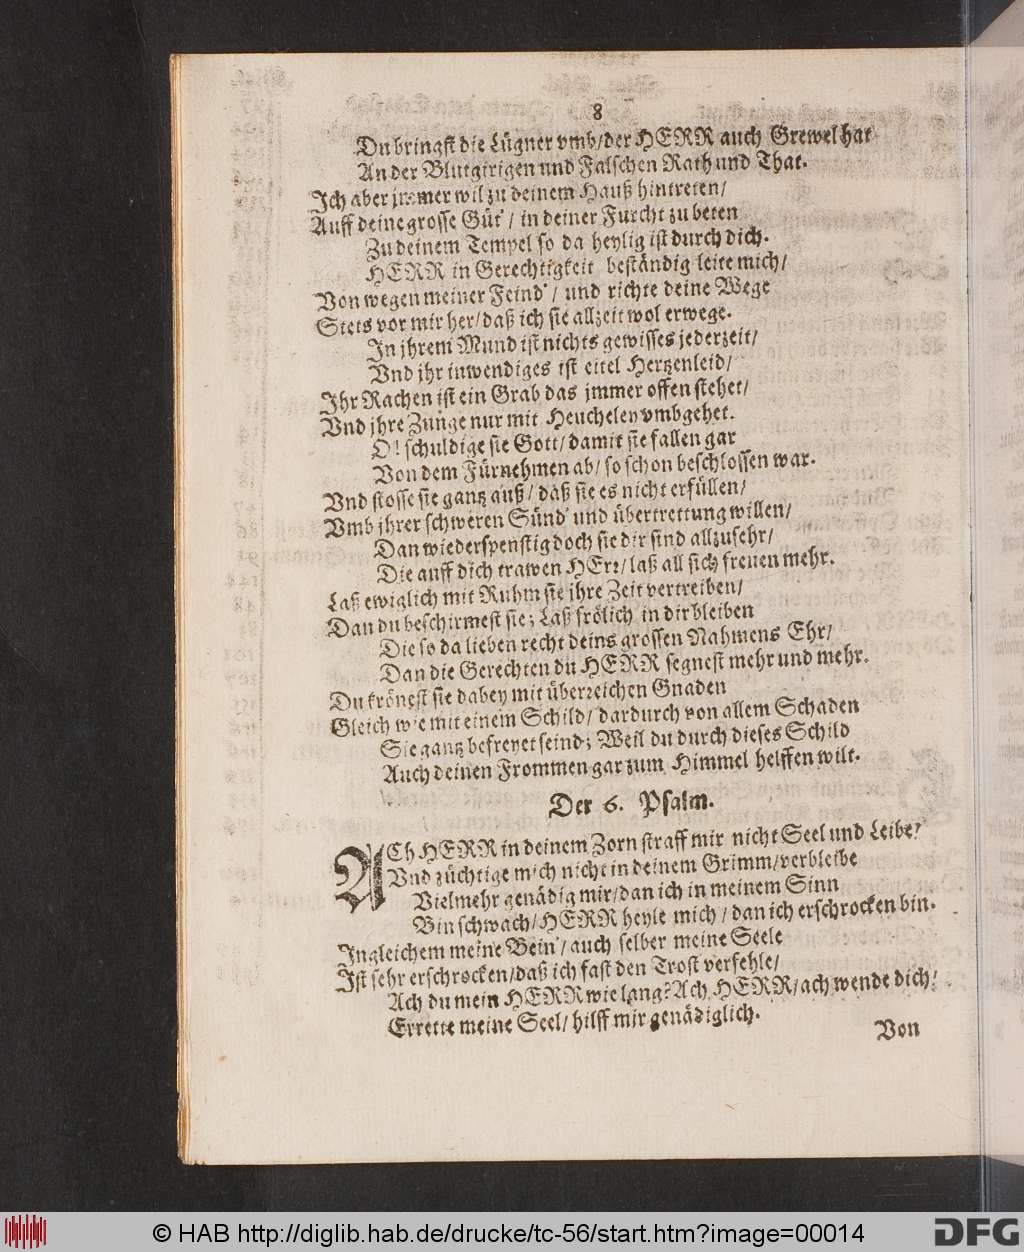 8
Du bringst die Lügner vmb/ der HERR auch Grewel hat
An der Blutgirigen und Falschen Rath und That.
Ich aber jmmer wil zu deinem Hauß hintreten/
Auff deine grosse Güt'/ in deiner Furcht zu beten
Zu deinem Tempel so da heylig ist durch dich.
HERR in Gerechtigkeit beständig leite mich/
Von wegen meiner Feind'/ und richte deine Wege
Stets vor mir her/ daß ich sie allzeit wol erwege.
In jhrem Mund ist nichts gewisses jederzeit/
Vnd jhr inwendiges ist eitel Hertzenleid/
Ihr Rachen ist ein Grab das jmmer offen stehet/
Vnd jhre Zunge nur mit Heucheley vmbgehet.
O! schuldige sie Gott/ damit sie fallen gar
Von dem Fürnehmen ab/ so schon beschlossen war.
Vnd stosse sie gantz auß/ daß sie es nicht erfüllen/
Vmb jhrer schweren Sünd' und übertrettung willen/
Dan wiederspenstig doch sie dir sind allzusehr/
Die auff dich trawen HErr/ laß all sich freuen mehr.
Laß ewiglich mit Ruhm sie jhre Zeit vertreiben/
Dan du beschirmest sie; Laß frölich in dir bleiben
Die so da lieben recht deins grossen Nahmens Ehr/
Dan die Gerechten du HERR segnest mehr und mehr.
Du krönest sie dabey mit überreichen Gnaden
Gleich wie mit einem Schild/ dardurch von allem Schaden
Sie gantz befreyet seind; Weil du durch dieses Schild
Auch deinen Frommen gar zum Himmel helffen wilt.
Der 6. Psalm.
ACh HERR in deinem Zorn straff mir nicht Seel und Leibe/
Vnd züchtige mich nicht in deinem Grimm/ verbleibe
Vielmehr genädig mir/ dan ich in meinem Sinn
Bin schwach/ HERR heyle mich/ dan ich erschrocken bin.
Ingleichem meine Bein'/ auch selber meine Seele
Ist sehr erschrocken/ daß ich fast den Trost verfehle/
Ach du mein HERR wie lang? Ach HERR/ ach wende dich/
Errette meine Seel/ hilff mir genädiglich.
Von
© HAB http://diglib.hab.de/drucke/tc-56/start.htm?image=00014
DFG